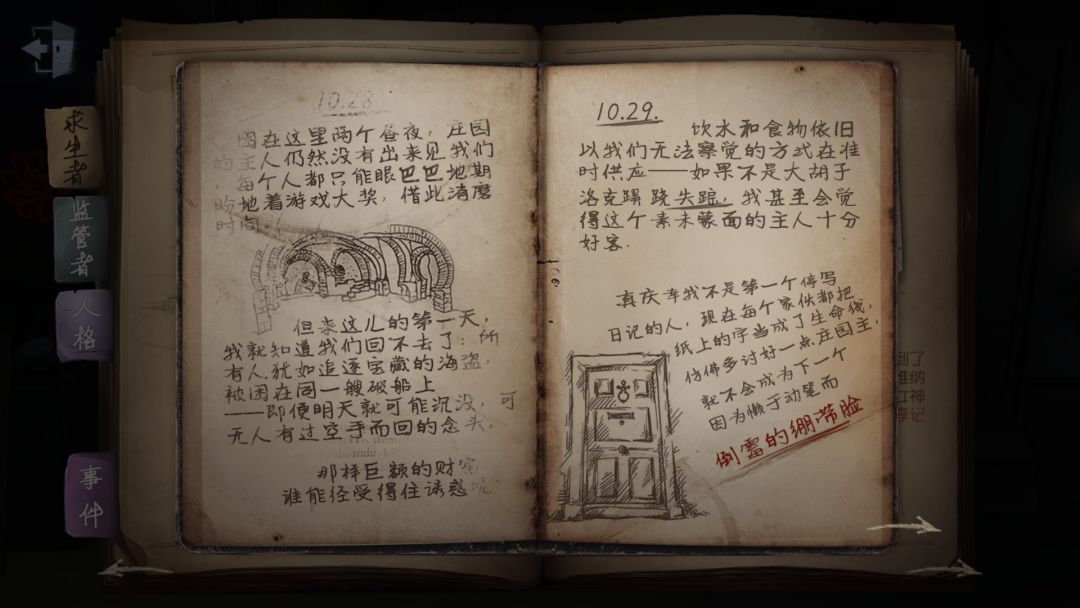 求生者
监管者
人格
事件
10.28
困在这里两个昼夜，庄园
的主人仍然没有出来见我们
，每个人都只能眼巴巴地期
盼地着游戏大奖，借此消磨
时间。
但来这儿的第一天，
我就知道我们回不去了：所
有人犹如追逐宝藏的海盗，
被困在同一艘破船上
——即使明天就可能沉没，可
无人有过空手而回的念头。
那样巨额的财富
谁能经受得住诱惑呢？
10.29.
饮水和食物依旧
以我们无法察觉的方式在准
时供应——如果不是大胡子
洛克蹊跷失踪，我甚至会觉
得这个素未蒙面的主人十分
好客.
真庆幸我不是第一个停写
日记的人，现在每个家伙都把
纸上的字当成了生命线，
仿佛多讨好一点庄园主，
就不会成为下一个
因为懒于动笔而
倒霉的绷带脸
到了
维纳